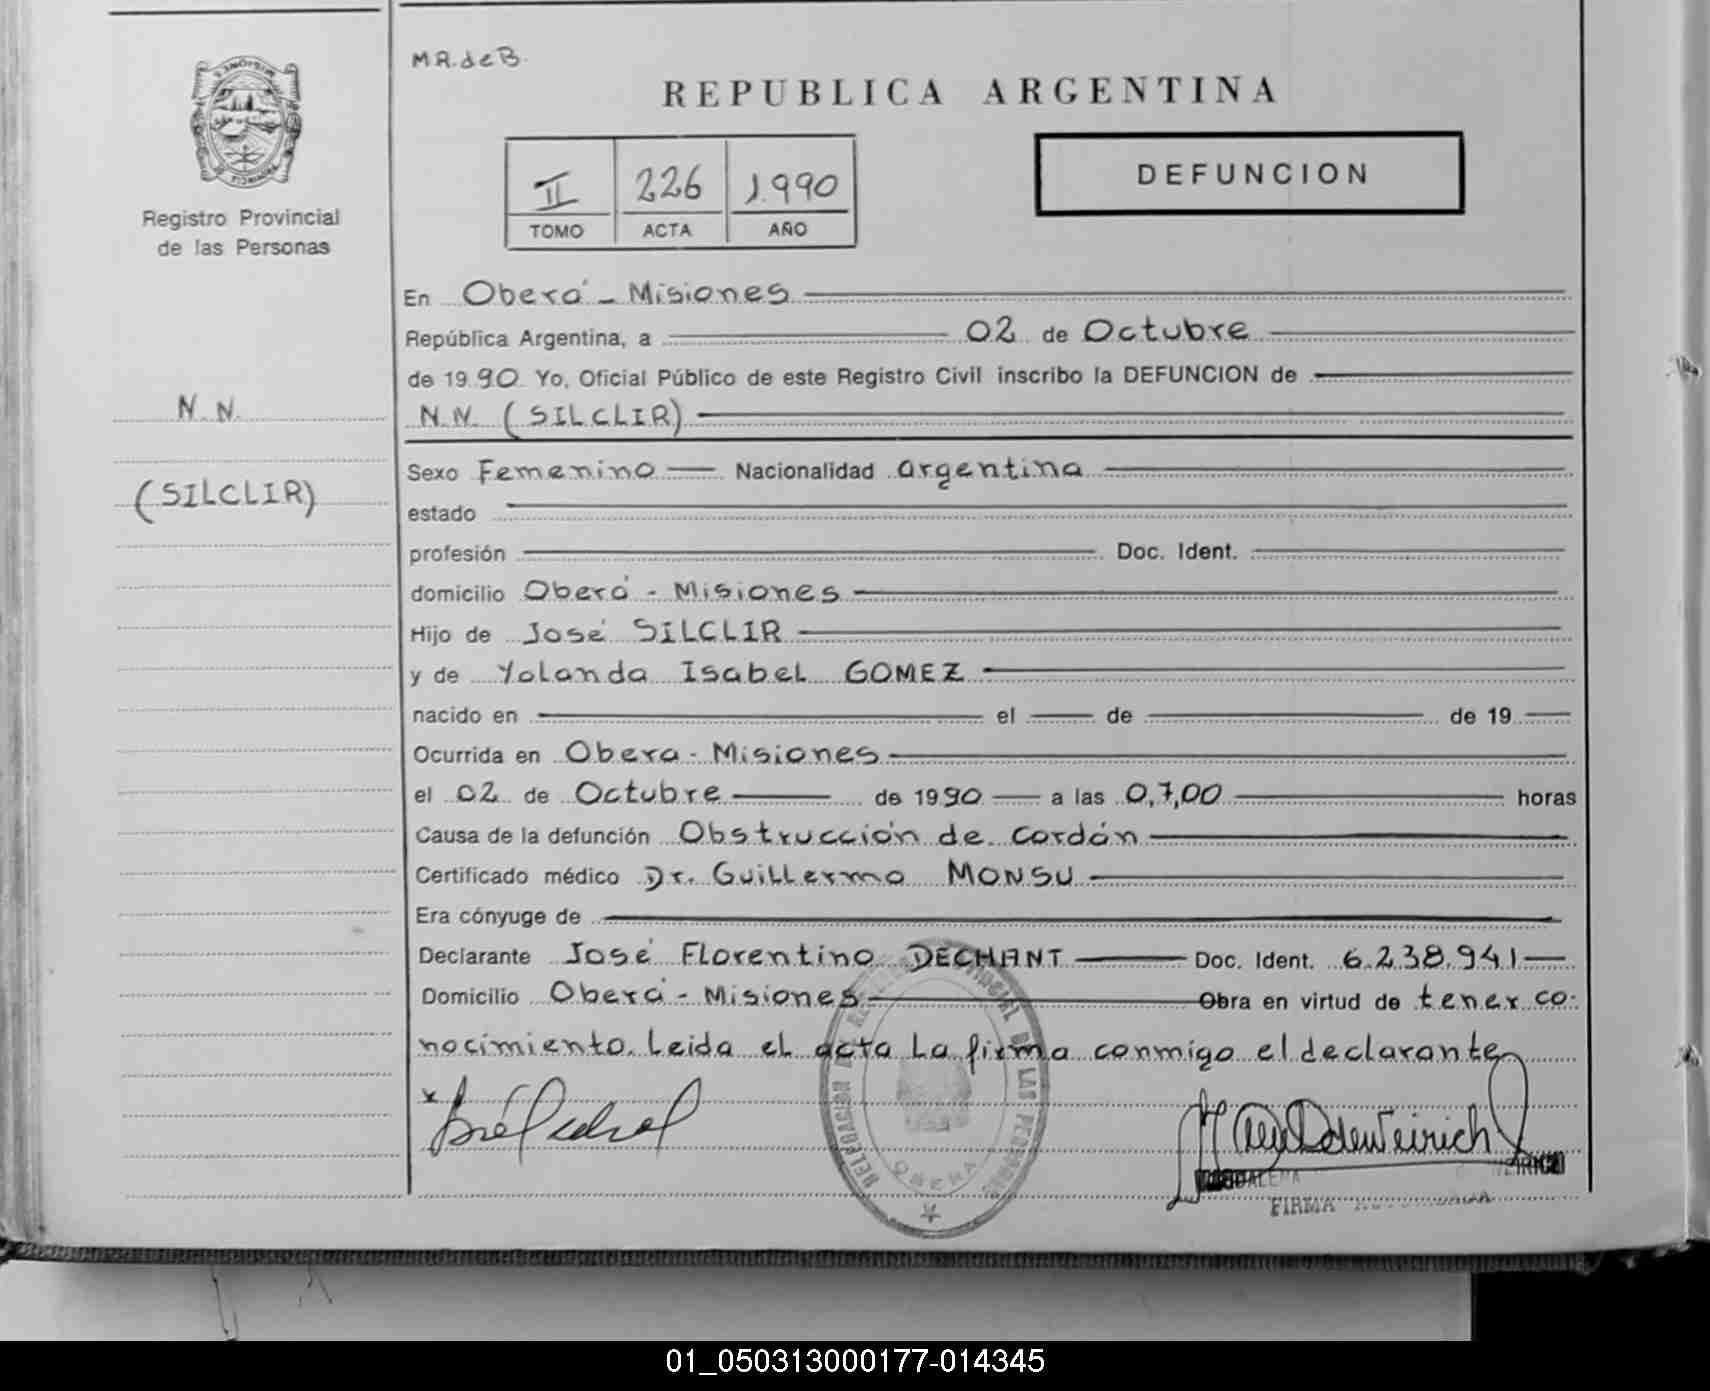 M.R. de B.
REPUBLICA ARGENTINA
MISIONES
PROVINCIA
Registro Provincial
de las Personas
II 226 1.990
TOMO ACTA AÑO
DEFUNCION
En Oberá - Misiones
República Argentina, a 02 de Octubre
de 19 90 Yo, Oficial Público de este Registro Civil inscribo la DEFUNCION de
N.N. (SILCLIR)
N. N.
(SILCLIR)
Sexo Femenino Nacionalidad argentina
estado
profesión Doc. Ident.
domicilio Oberá - Misiones
Hijo de José SILCLIR
y de Yolanda Isabel GOMEZ
nacido en el de de 19
Ocurrida en Obera - Misiones
el 02 de Octubre de 19 90 a las 0,7,00 horas
Causa de la defunción Obstrucción de cordón
Certificado médico Dr. Guillermo MONSU
Era cónyuge de
Declarante José Florentino DECHANT Doc. Ident. 6.238.941
Domicilio Oberá - Misiones Obra en virtud de tener co-
nocimiento. Leida el acta la firma conmigo el declarante
DELEGACION DE LAS PERSONAS
OBERA
FIRMA
01_050313000177-014345